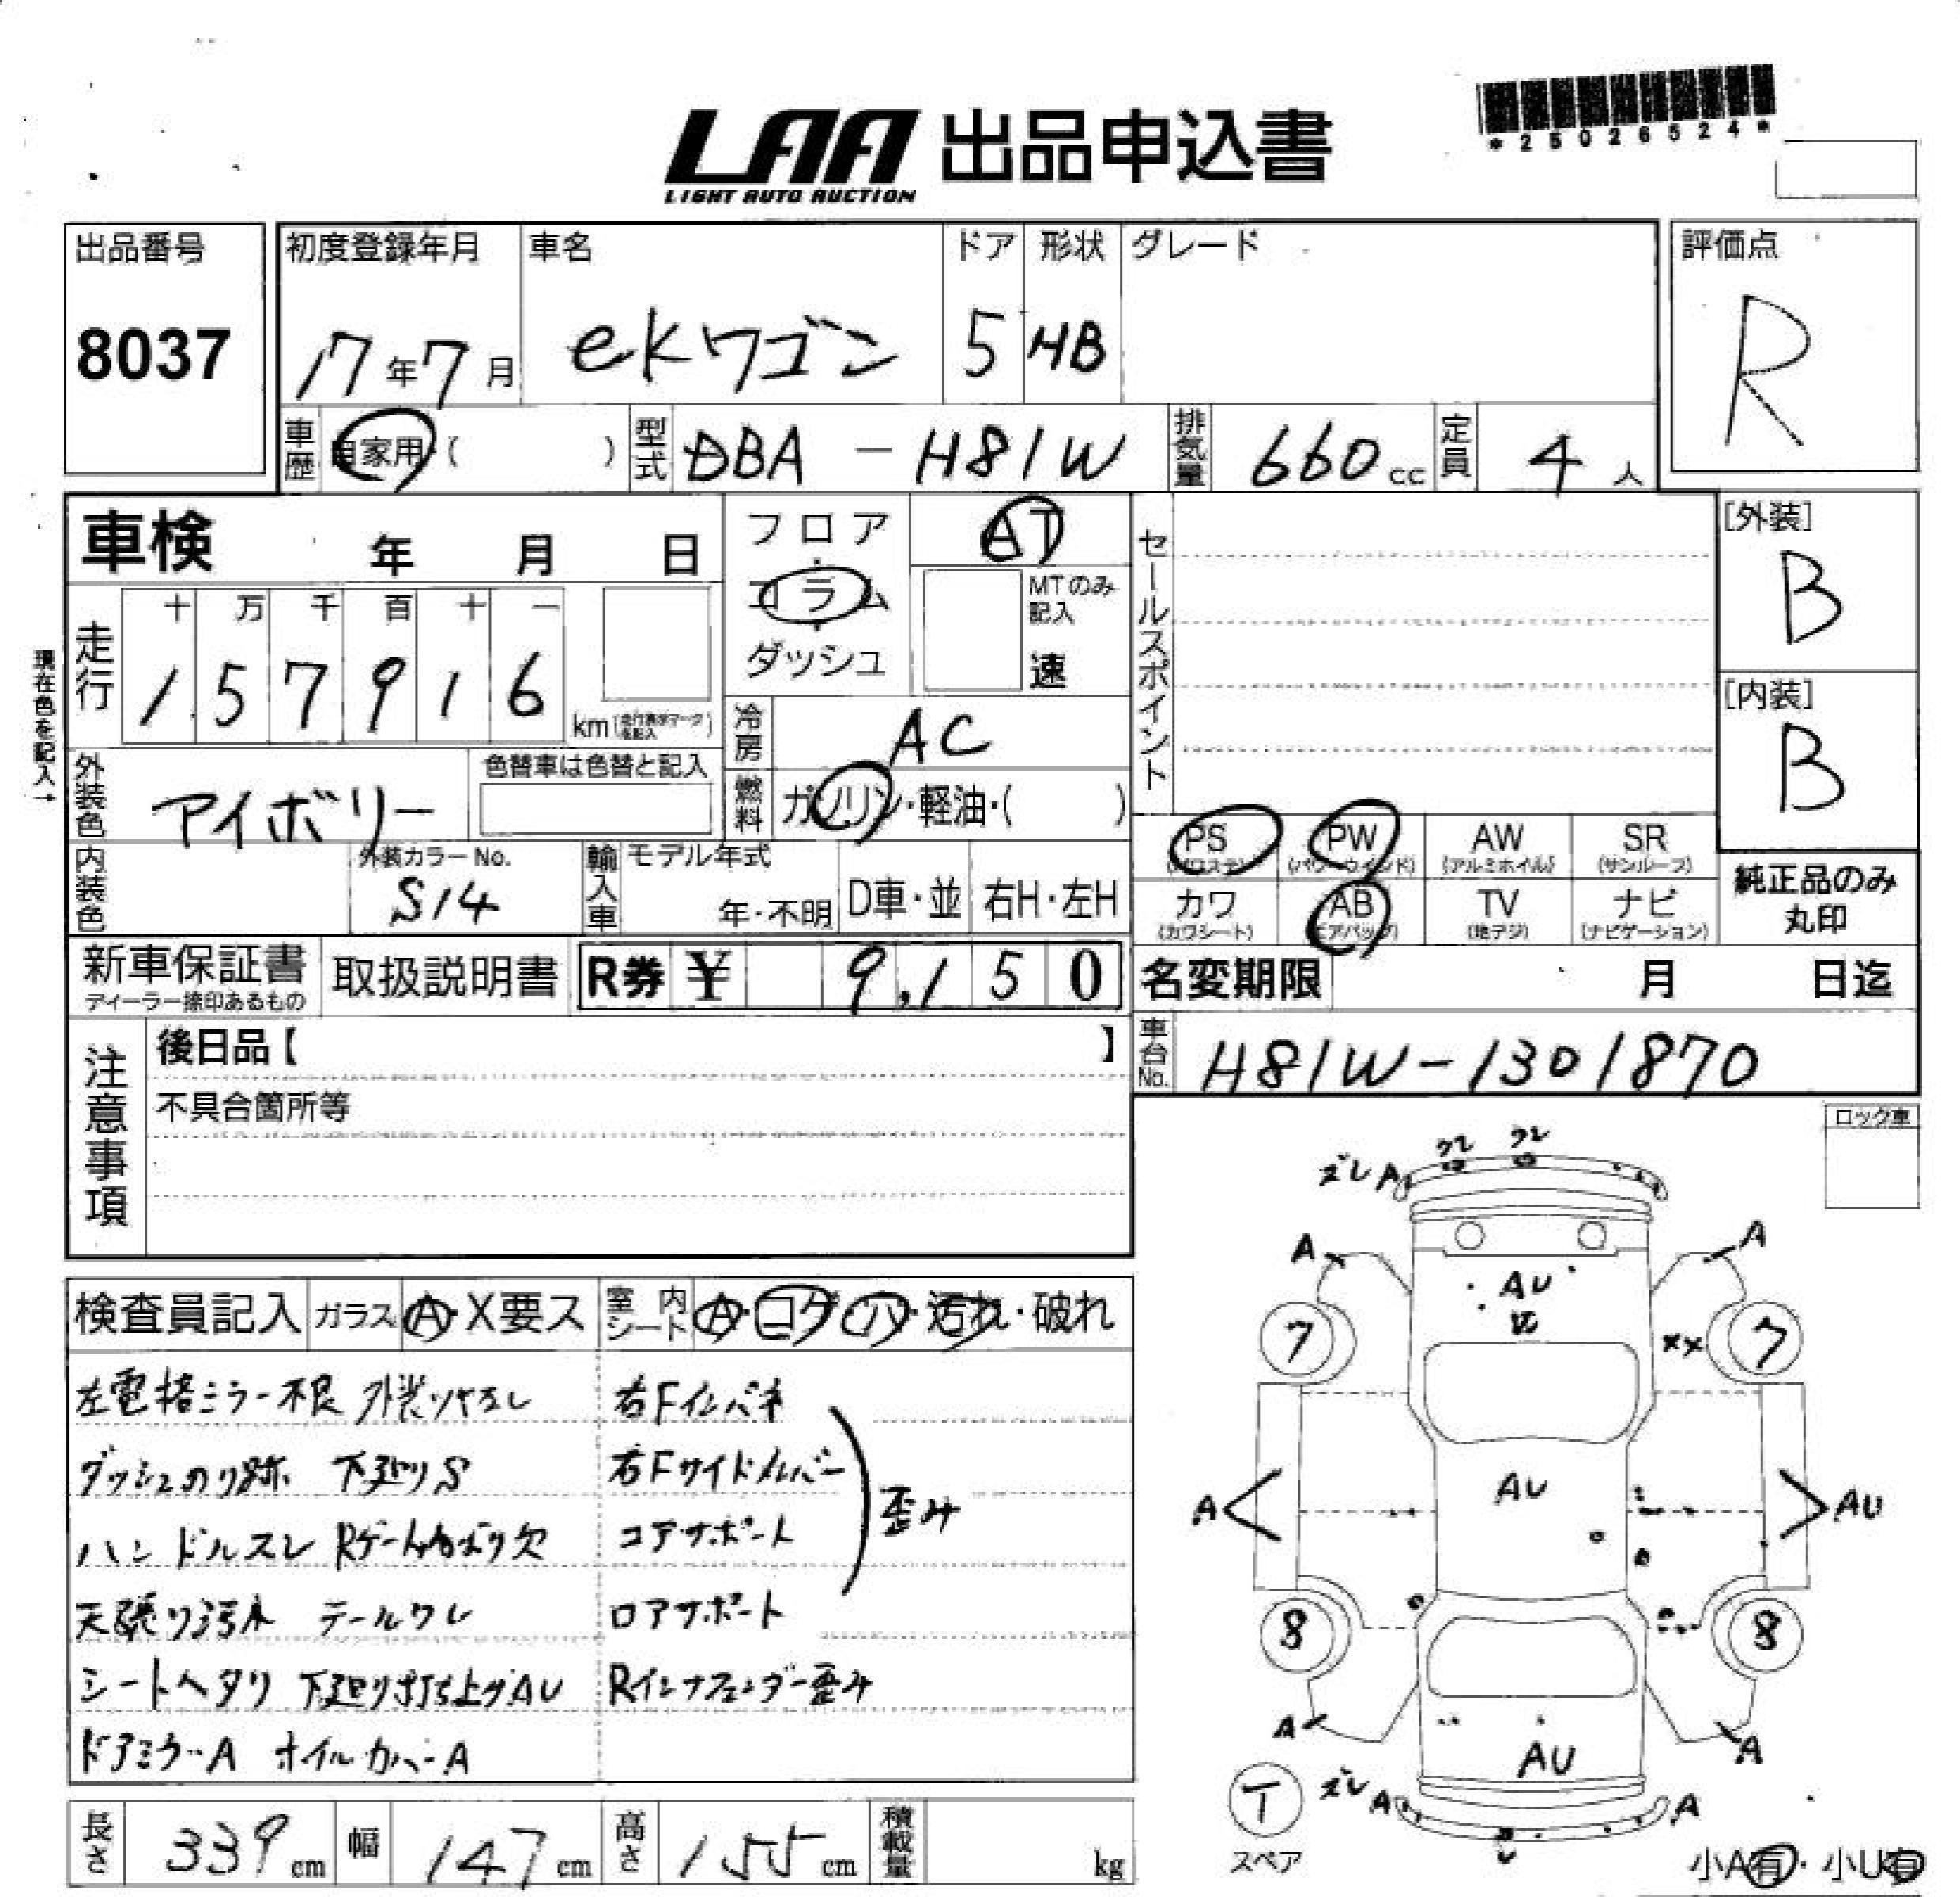 *25026524*
LAA 出品申込書
LIGHT AUTO AUCTION
出品番号 初度登録年月 車名 ドア 形状 グレード 評価点
8037 17年7月 ekワゴン 5 HB R
車歴 自家用 ( ) 型式 DBA - H81W 排気量 660cc 定員 4人
車検 年 月 日 フロア・コラム・ダッシュ AT セールスポイント [外装] B
MTのみ記入 速
現在色を記入→
走行 十 万 千 百 十 一
1 5 7 9 1 6 km
[内装] B
冷房 AC
外装色 アイボリー 色替車は色替と記入 燃料 ガソリン・軽油・( )
PS (パワステ) PW (パワーウインド) AW (アルミホイル) SR (サンルーフ)
内装色 外装カラーNo. S14 輸入車 モデル年式 年・不明 D車・並 右H・左H
カワ (カワシート) AB (エアバッグ) TV (地デジ) ナビ (ナビゲーション)
純正品のみ丸印
新車保証書 ディーラー捺印あるもの 取扱説明書 R券 ¥ 9,150 名変期限 月 日迄
注意事項 後日品【 】 車台No. H81W-1301870
不具合箇所等
ロック車
検査員記入 ガラス A・X要ス 室内シート A・コゲ・ハ・汚れ・破れ
左電格ミラー不良 外装ツヤなし 右Fインパネ
ダッシュのり跡 下廻りS 右Fサイドメンバー
ハンドルスレ コアサポート 歪み
天張り汚れ テールワレ ロアサポート
シートヘタリ 下廻り打ち上げAU Rインナフェンダー歪み
ドアミラーA ホイルカバーA
長さ 339cm 幅 147cm 高さ 155cm 積載量 kg
ワレ ワレ
ズレ A
A A
AU
7 XX 7
A AU AU
8 8
A A
AU
T ズレ A A
スペア
小A有・小U有